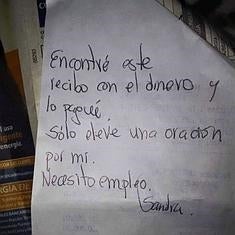 Encontré este
recibo con el dinero y
lo pagué.
Sólo eleve una oración
por mi.
Necesito empleo.
Sandra.
energía